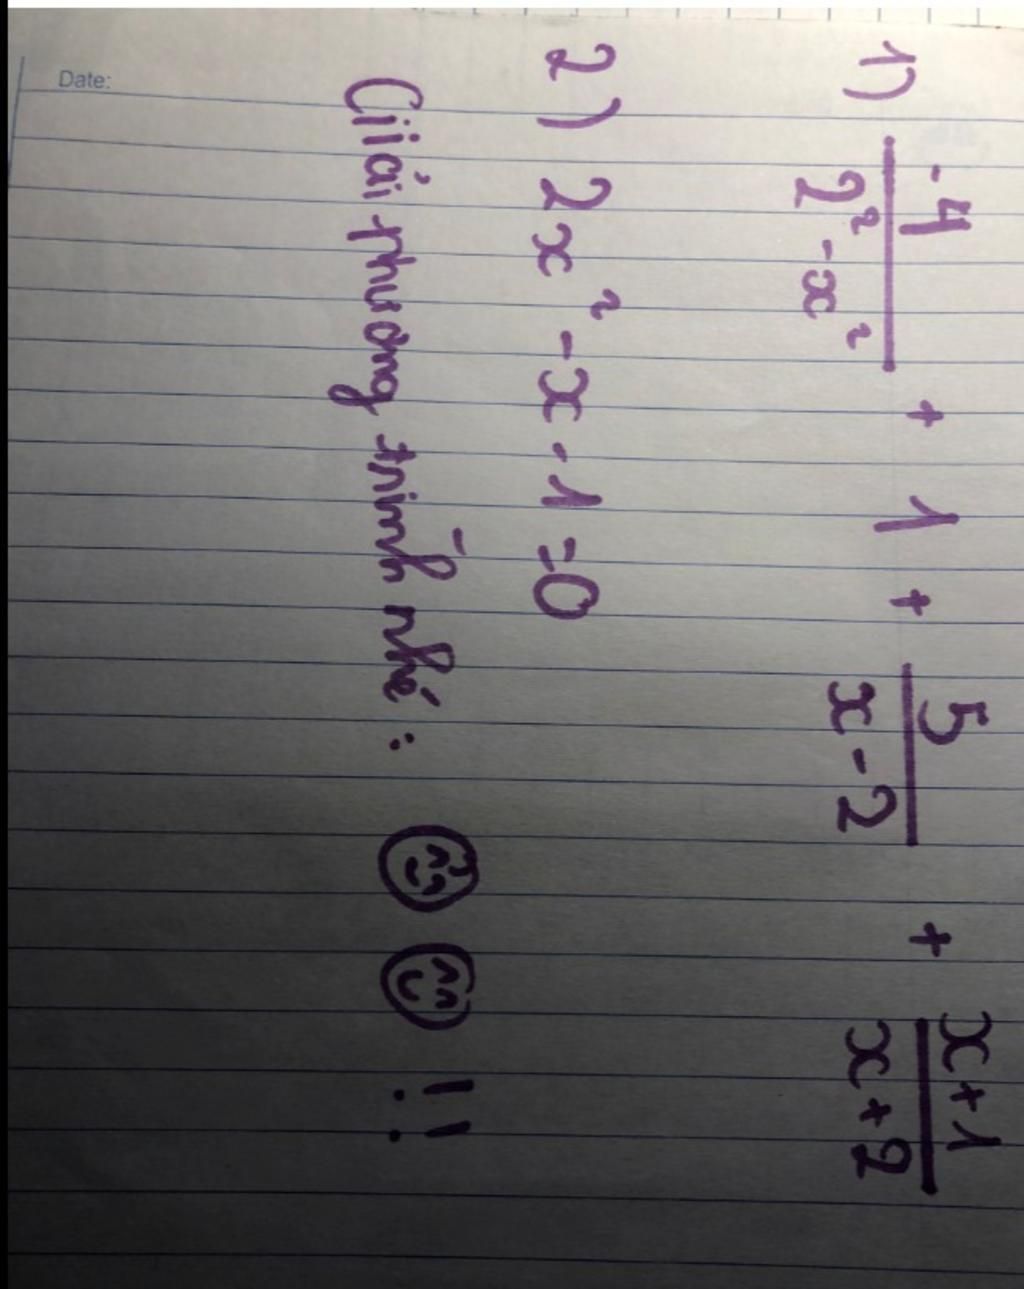 1) -4/(2²-x²) + 1 + 5/(x-2) + (x+1)/(x+2)
2) 2x²-x-1=0
Giải phương trình nhé: !!
Date: